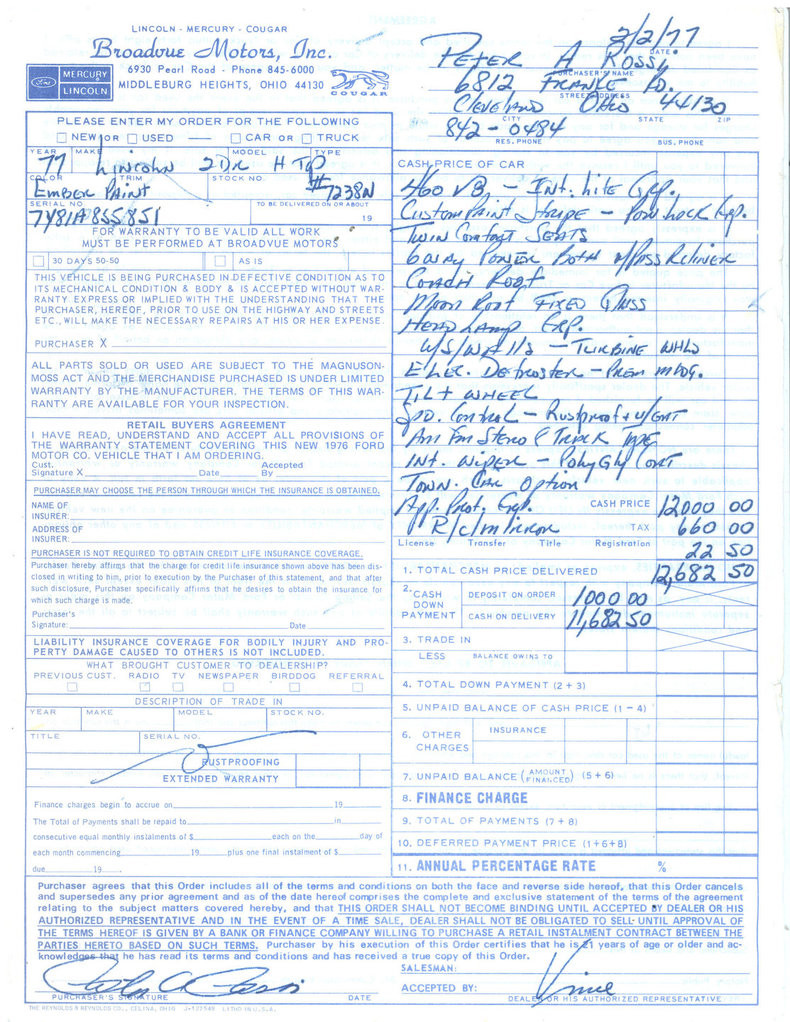 LINCOLN - MERCURY - COUGAR
Broadvue Motors, Inc.
6930 Pearl Road - Phone 845-6000
MIDDLEBURG HEIGHTS, OHIO 44130
Ford MERCURY
LINCOLN
COUGAR
2/2/77
DATE
PETER A ROSSI
PURCHASER'S NAME
6812 FRANKE RD.
STREET ADDRESS
CLEVELAND OHIO 44130
CITY STATE ZIP
842-0484
RES. PHONE BUS. PHONE
PLEASE ENTER MY ORDER FOR THE FOLLOWING
NEW or USED — CAR OR TRUCK
YEAR MAKE MODEL TYPE
77 Lincoln 2 DR H Top
COLOR TRIM STOCK NO.
Ember Paint #7238N
SERIAL NO TO BE DELIVERED ON OR ABOUT
7Y81A855851 19
FOR WARRANTY TO BE VALID ALL WORK
MUST BE PERFORMED AT BROADVUE MOTORS
30 DAYS 50-50 AS IS
THIS VEHICLE IS BEING PURCHASED IN DEFECTIVE CONDITION AS TO
ITS MECHANICAL CONDITION & BODY & IS ACCEPTED WITHOUT WAR-
RANTY EXPRESS OR IMPLIED WITH THE UNDERSTANDING THAT THE
PURCHASER, HEREOF, PRIOR TO USE ON THE HIGHWAY AND STREETS
ETC., WILL MAKE THE NECESSARY REPAIRS AT HIS OR HER EXPENSE.
PURCHASER X
ALL PARTS SOLD OR USED ARE SUBJECT TO THE MAGNUSON-
MOSS ACT AND THE MERCHANDISE PURCHASED IS UNDER LIMITED
WARRANTY BY THE MANUFACTURER. THE TERMS OF THIS WAR-
RANTY ARE AVAILABLE FOR YOUR INSPECTION.
RETAIL BUYERS AGREEMENT
I HAVE READ, UNDERSTAND AND ACCEPT ALL PROVISIONS OF
THE WARRANTY STATEMENT COVERING THIS NEW 1976 FORD
MOTOR CO. VEHICLE THAT I AM ORDERING.
Cust. Accepted
Signature X Date By
PURCHASER MAY CHOOSE THE PERSON THROUGH WHICH THE INSURANCE IS OBTAINED.
NAME OF
INSURER:
ADDRESS OF
INSURER:
PURCHASER IS NOT REQUIRED TO OBTAIN CREDIT LIFE INSURANCE COVERAGE.
Purchaser hereby affirms that the charge for credit life insurance shown above has been dis-
closed in writing to him, prior to execution by the Purchaser of this statement, and that after
such disclosure, Purchaser specifically affirms that he desires to obtain the insurance for
which such charge is made.
Purchaser's
Signature: Date
LIABILITY INSURANCE COVERAGE FOR BODILY INJURY AND PRO-
PERTY DAMAGE CAUSED TO OTHERS IS NOT INCLUDED.
WHAT BROUGHT CUSTOMER TO DEALERSHIP?
PREVIOUS CUST. RADIO TV NEWSPAPER BIRDDOG REFERRAL
DESCRIPTION OF TRADE IN
YEAR MAKE MODEL STOCK NO.
TITLE SERIAL NO.
RUSTPROOFING
EXTENDED WARRANTY
Finance charges begin to accrue on 19
The Total of Payments shall be repaid to in
consecutive equal monthly instalments of $ each on the day of
each month commencing 19 plus one final instalment of $
due 19 .
CASH PRICE OF CAR
460 V8 - Int. Lite Grp.
Custom Paint Stripe - Pow Lock Grp.
Twin Comfort Seats
6 way Power Both w/Pass Recliner
Coach Roof
Moon Roof Fixed Glass
Head Lamp Grp.
W/S/Walls - Turbine Whls
Elec. Defroster - Prem Mldg.
Tilt Wheel
Spd. Control - Rustproof + U/Coat
Am Fm Stereo & Track Tape
Int. Wiper - Poly Gly Coat
Town Car Option
App. Prot. Grp. CASH PRICE 12000 00
R/c/m Mirror TAX 660 00
License Transfer Title Registration 22 50
1. TOTAL CASH PRICE DELIVERED 12,682 50
2. CASH DOWN PAYMENT
DEPOSIT ON ORDER 1000 00
CASH ON DELIVERY 11,682 50
3. TRADE IN
LESS BALANCE OWING TO
4. TOTAL DOWN PAYMENT (2 + 3)
5. UNPAID BALANCE OF CASH PRICE (1 - 4)
6. OTHER CHARGES INSURANCE
7. UNPAID BALANCE (AMOUNT FINANCED) (5 + 6)
8. FINANCE CHARGE
9. TOTAL OF PAYMENTS (7 + 8)
10. DEFERRED PAYMENT PRICE (1+6+8)
11. ANNUAL PERCENTAGE RATE %
Purchaser agrees that this Order includes all of the terms and conditions on both the face and reverse side hereof, that this Order cancels
and supersedes any prior agreement and as of the date hereof comprises the complete and exclusive statement of the terms of the agreement
relating to the subject matters covered hereby, and that THIS ORDER SHALL NOT BECOME BINDING UNTIL ACCEPTED BY DEALER OR HIS
AUTHORIZED REPRESENTATIVE AND IN THE EVENT OF A TIME SALE, DEALER SHALL NOT BE OBLIGATED TO SELL UNTIL APPROVAL OF
THE TERMS HEREOF IS GIVEN BY A BANK OR FINANCE COMPANY WILLING TO PURCHASE A RETAIL INSTALMENT CONTRACT BETWEEN THE
PARTIES HERETO BASED ON SUCH TERMS. Purchaser by his execution of this Order certifies that he is 21 years of age or older and ac-
knowledges that he has read its terms and conditions and has received a true copy of this Order.
SALESMAN:
Peter A Rossi ACCEPTED BY: Vince
PURCHASER'S SIGNATURE DATE DEALER OR HIS AUTHORIZED REPRESENTATIVE
THE REYNOLDS & REYNOLDS CO., CELINA, OHIO J-121548 LITHO IN U.S.A.